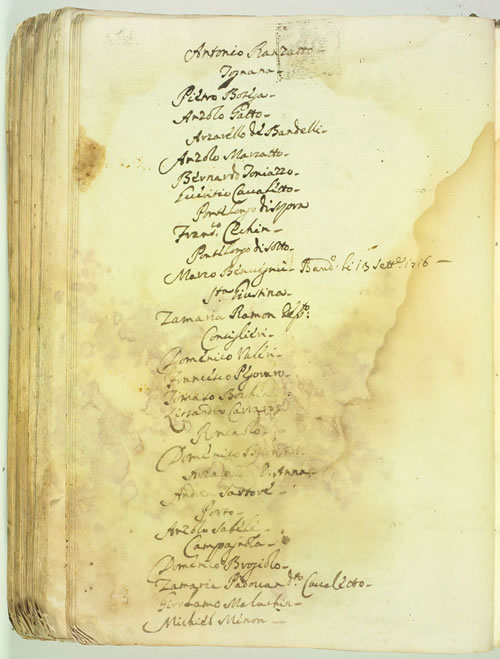 Antonio Ranzatto
Tognana
Pietro Boreja
Anzolo Gatto
Arzarello de Bandelli
Anzolo Marzatto
Bernardo Toniazzo
Cavaletto
Pontelongo di sopra
Franc.co Cechin
Pontelongo di sotto
Marco Benvegnù Band.o li 13 Sett.e 1716
S.ta Giustina
Zamaria Ramon
Consiglieri
Domenico Valeri
Francesco Piovan
Tomaso
Lissandro
Roncola
Domenico
Arzarello D. Anna
Andrea Sartore
Porto
Anzolo Sabéli
Campagnola
Domenico Brogiolo
Zamaria Padovan d.to Cavaletto
Girolamo Malachin
Michiel Menon